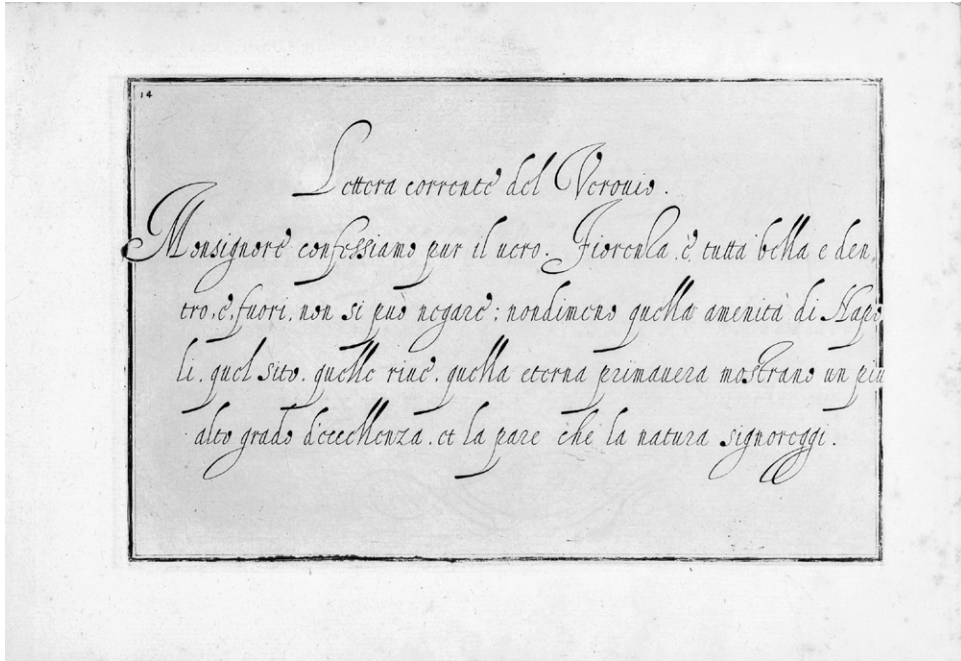 14
Lettera corrente del Verovio.
Monsignore confessiamo pur il uero: Fiorenza è tutta bella e den,
tro, e, fuori, non si può negare; nondimeno quella amenità di Napo
li, quel sito, quelle riue, quella eterna primauera mostrano un più
alto grado d'eccellenza, et la pare che la natura signoreggi.